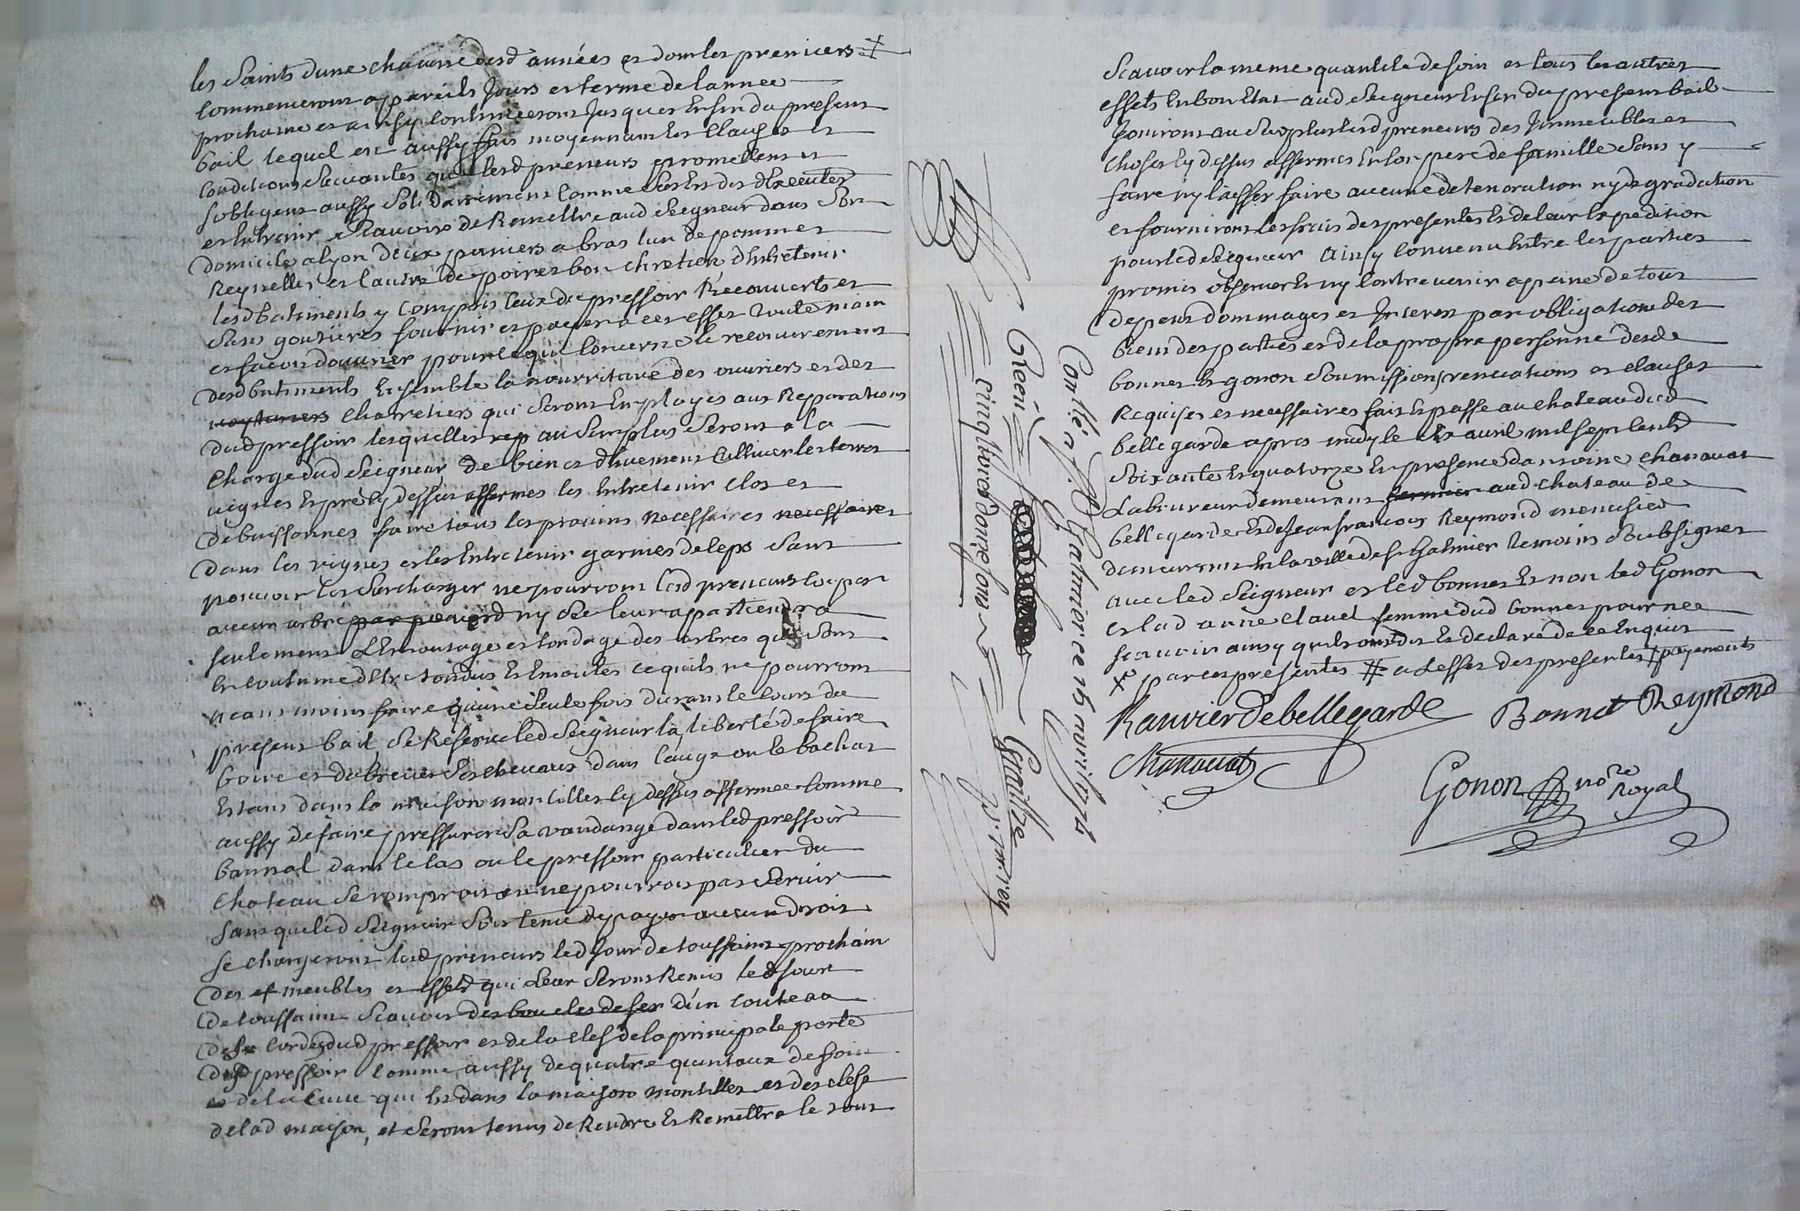 les Saints d'une chacune desd années et dont les premiers ‡
commenceront a pareils Jours et terme de lannee
prochaine et ainsy continueront Jusques En fin du present
bail lequel est aussy fait moyennant les clauses et
conditions suivantes que lesd preneurs promettent et
sobligent aussy solidairement comme dessus des dExecuter
et entretenir scavoir de Remettre aud Seigneur dans son
domicile a lyon deux paniers a bras lun de pommes
Reynettes et lautre de poires bon chretien d'Entretenir
lesd batiments y compris ceux du pressoir Recouverts et
sans goutieres fournir et payer a cet effet toute main
et facon douvrier pour ce qui concerne le recouvrement
desd batiments Ensemble la nourriture des ouvriers et des
voyturiers charretiers qui seront Employes aux Reparations
dud pressoir lesquelles rep au surplus seront a la
charge dud Seigneur de bien et duement cultiver les terres
vignes et prés cy dessus affermés les Entretenir clos et
debuissonnes faire tous les provins necessaires necessaires
dans les vignes et les Entretenir garnies de ceps sans
pouvoir les surcharger ne pourront lesd preneurs couper
aucun arbre par pied ny sec leur apartiendra
seulement lEmoutage et tondage des arbres qui sont
En coutume dEtre tondus et Emoutés ce quils ne pourront
neanmoins faire qu'une seule fois durant le cours du
present bail se Reserve led Seigneur la liberté de faire
boire et abreuver ses chevaux dans l'auge ou le bachat
Etant dans la maison montillet cy dessus affermee comme
aussy de faire pressurer sa vandange dans led pressoir
bannal dans le cas ou le pressoir particulier du
chateau se romproit ou ne pourroit pas servir
sans que led Seigneur soit tenu de payer aucun droit
se chargeront lesd preneurs led Jour de toussaint prochain
des ef meubles et effets qui leur seront Remis led Jour
de toussaint scavoir des boucles de fer d'un couteau
des cordes dud pressoir et de la clef de la principale porte
dud pressoir comme aussy de quatre quintaux de foin
et de la cuve qui Est dans la maison montillet et des clefs
de lad maison, et seront tenus de Rendre et Remettre le tout
scavoir la meme quantité de foin et tous les autres
effets En bon Etat aud Seigneur En fin du present bail
Jouiront au surplus lesd preneurs des Immeubles et
choses cy dessus affermés En bon pere de famille sans y
faire ny laisser faire aucune deterioration ny degradation
et fourniront les frais des presentes et de leur Expedition
pour led Seigneur Ainsy convenu Entre les parties
promis observer et ny contrevenir a peine de tous
depens dommages et Interets par obligation des
biens des parties et de la propre personne desd
bonnet et gonon soumissions renonciations et clauses
Requises et necessaires fait et passé au chateau dud
bellegarde apres midy le dix avril mil sept cent
soixante et quatorze En presence dantoine chanavat
Laboureur demeurant fermier aud chateau de
bellegarde et de Jean francois Reymond menuisier
demeurant En la ville de St Galmier temoins soubsignes
avec led Seigneur et led bonnet Et non led Gonon
et lad anne clavel femme dud bonnet pour ne
scavoir ainsy quils ont dit et declaré de ce Enquis
X par ces presentes ‡ a leffet des presentes ‡ payements
Ranvier de bellegarde Bonnet Reymond
Chanavat
Gonon nore Royal
Conllé a St Galmier ce 16 avril 1774
Receü
cinq livres douze sols